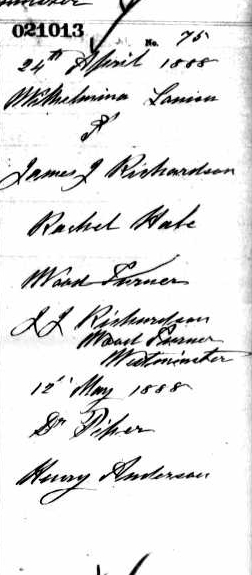 021013
No. 75
24th April 1888
Wilhelmina Louisa
F
James J Richardson
Rachel Hale
Wood Turner
J J Richardson
Wood Turner
Westminster
12th May 1888
Dr Piper
Henry Anderson